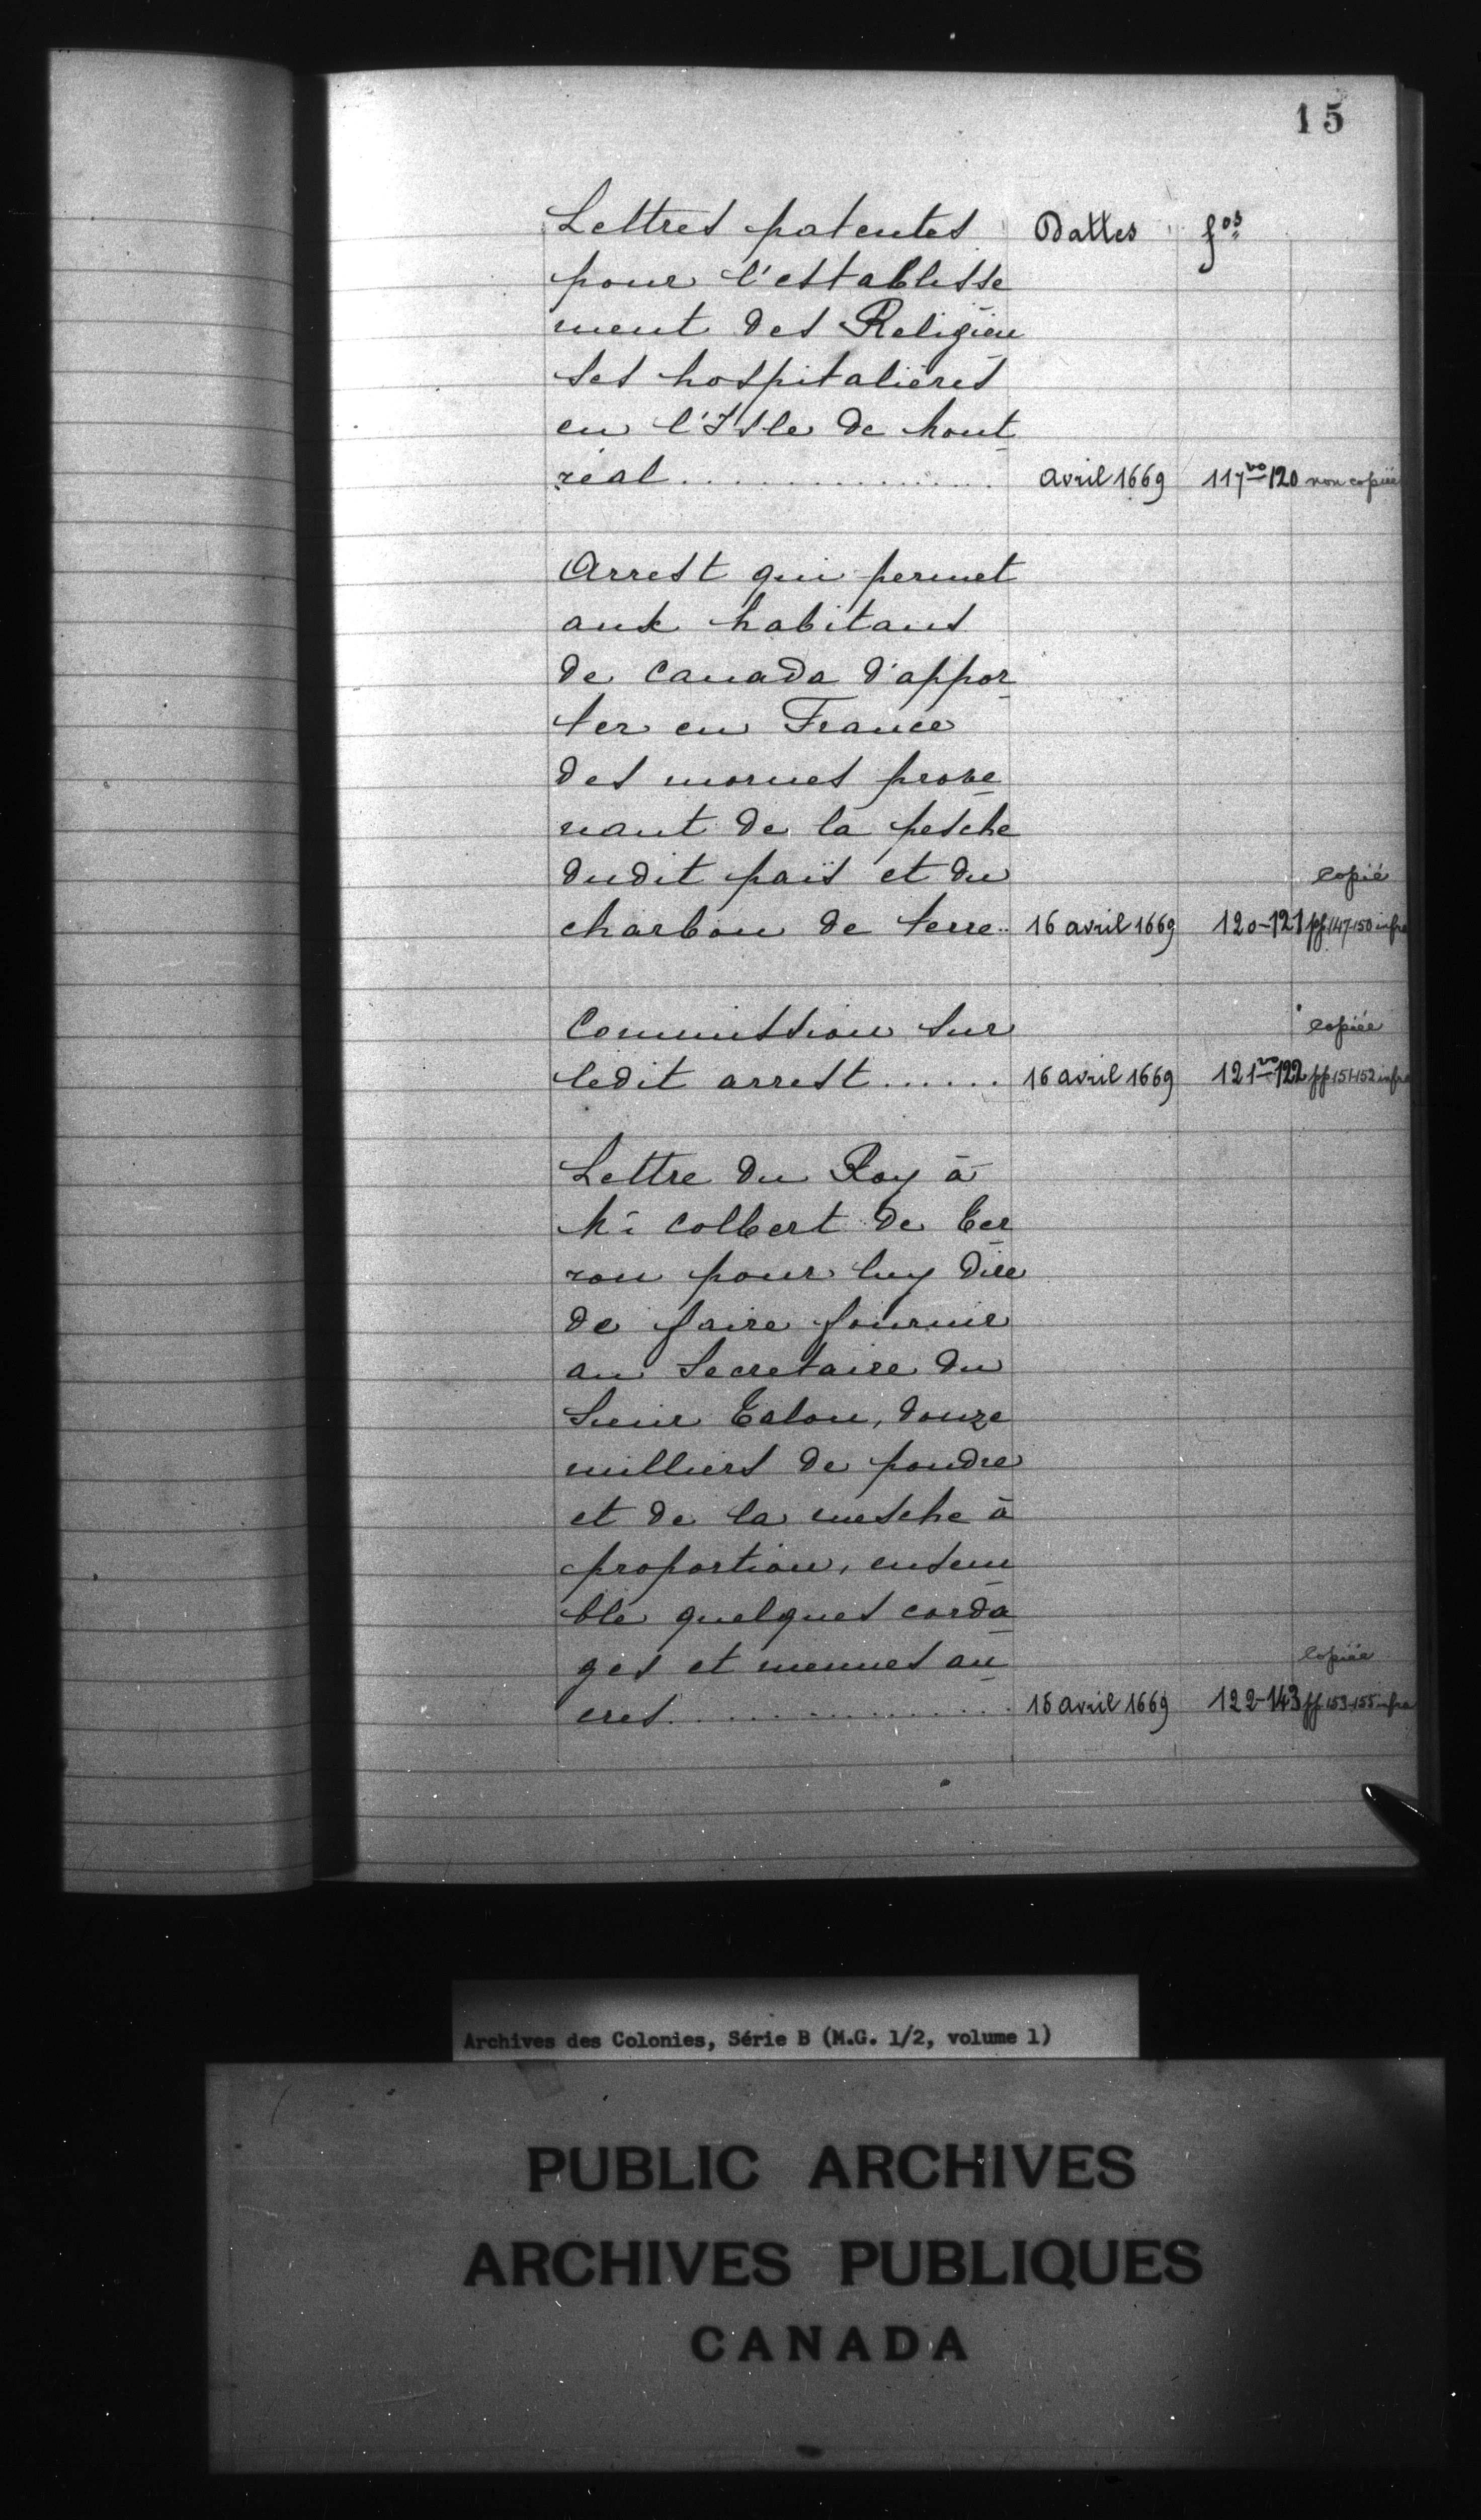 15
Lettres patentes Dattes fos
pour l'establisse
ment des Religieu
ses hospitalières
en l'Isle de Mont
réal................ avril 1669 117vo-120 non copiée
Arrest qui permet
aux habitans
de Canada d'appor
ter en France
des morues prove
nant de la pesche
dudit païs et du copié
charbon de terre.. 16 avril 1669 120-121 pp 147-150 infra
Commission sur copiée
ledit arrest...... 16 avril 1669 121vo-122 pp 151-152 infra
Lettre du Roy à
Mr Colbert de Ter
ron pour luy dire
de faire fournir
au Secretaire du
Sieur Talon, douze
milliers de poudre
et de la mesche à
proportion, ensem
ble quelques corda
ges et menues an copiée
cres.................. 16 avril 1669 122-143 pp 153-155 infra
Archives des Colonies, Série B (M.G. 1/2, volume 1)
PUBLIC ARCHIVES
ARCHIVES PUBLIQUES
CANADA